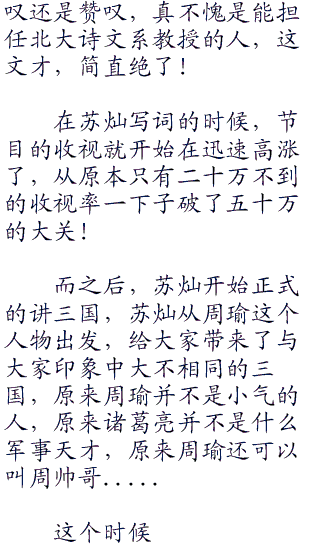 叹还是赞叹，真不愧是能担
任北大诗文系教授的人，这
文才，简直绝了！
在苏灿写词的时候，节
目的收视就开始在迅速高涨
了，从原本只有二十万不到
的收视率一下子破了五十万
的大关！
而之后，苏灿开始正式
的讲三国，苏灿从周瑜这个
人物出发，给大家带来了与
大家印象中大不相同的三
国，原来周瑜并不是小气的
人，原来诸葛亮并不是什么
军事天才，原来周瑜还可以
叫周帅哥.....
这个时候